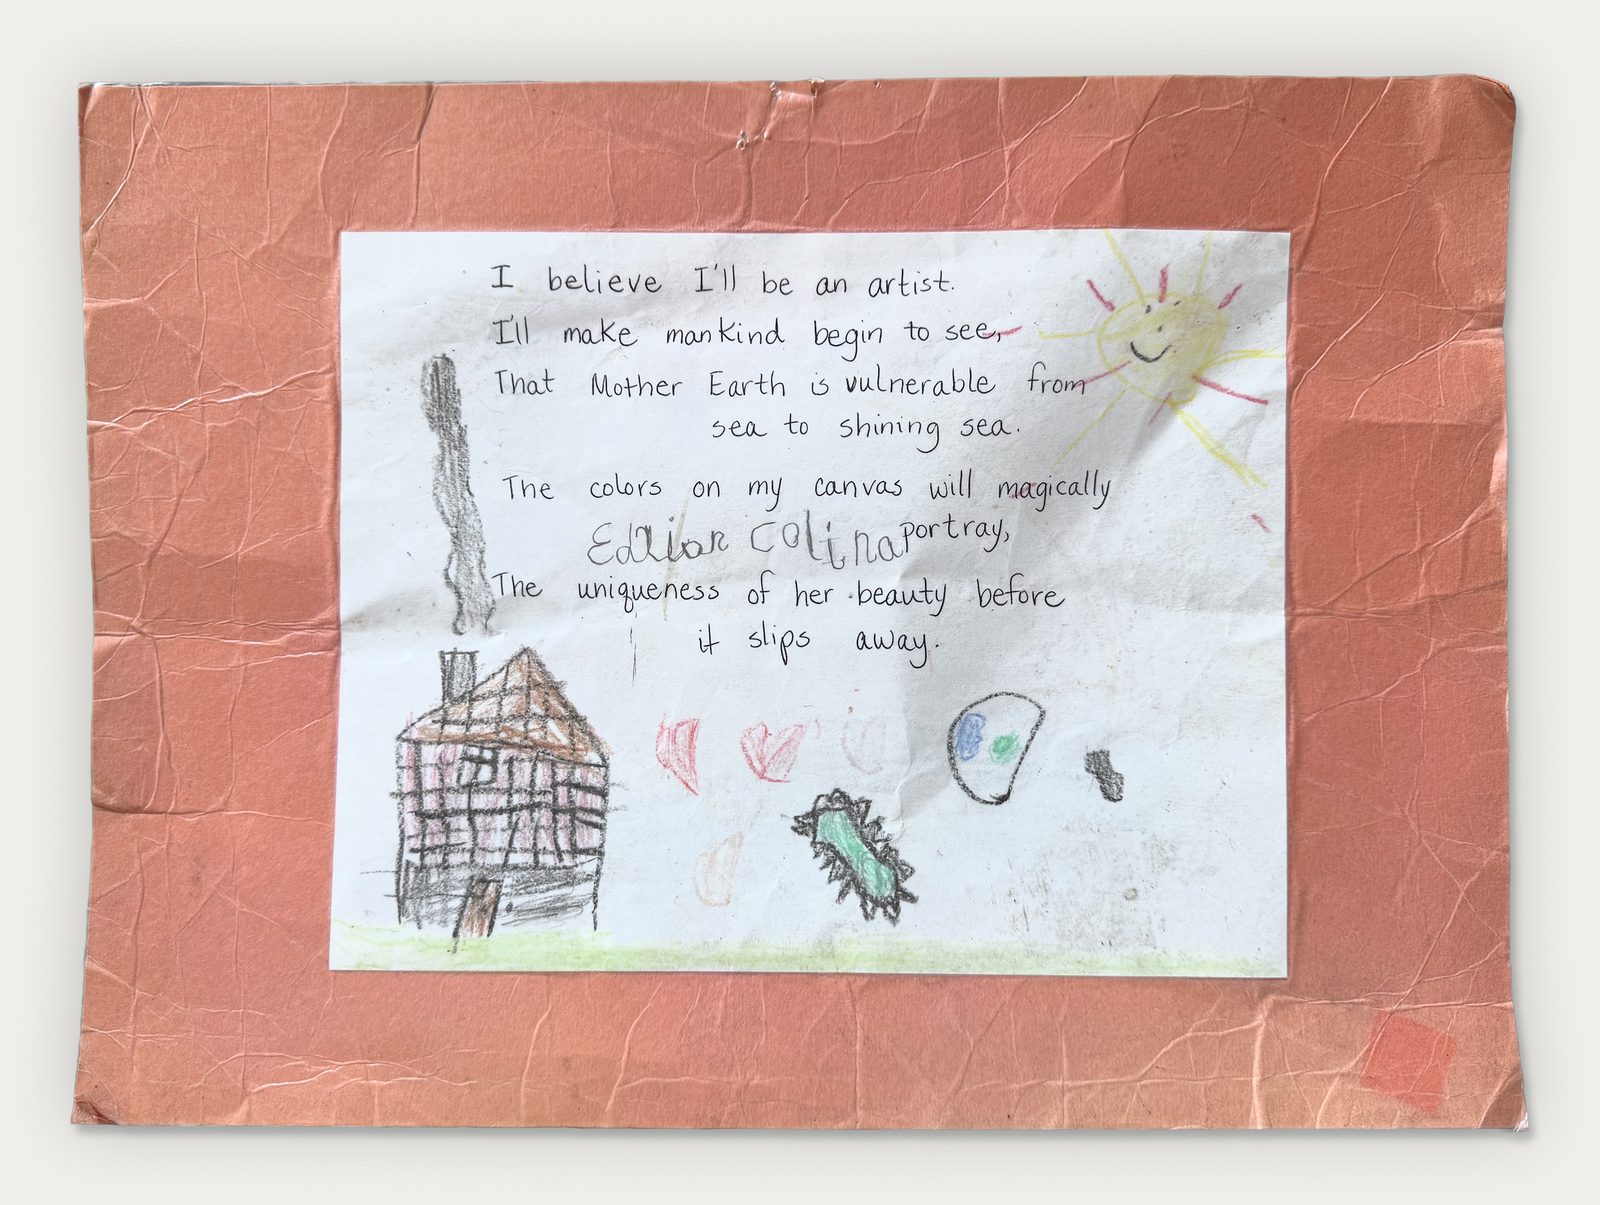 I believe I'll be an artist.
I'll make mankind begin to see,
That Mother Earth is vulnerable from
sea to shining sea.
The colors on my canvas will magically
portray,
Colina
The uniqueness of her beauty before
it slips away.